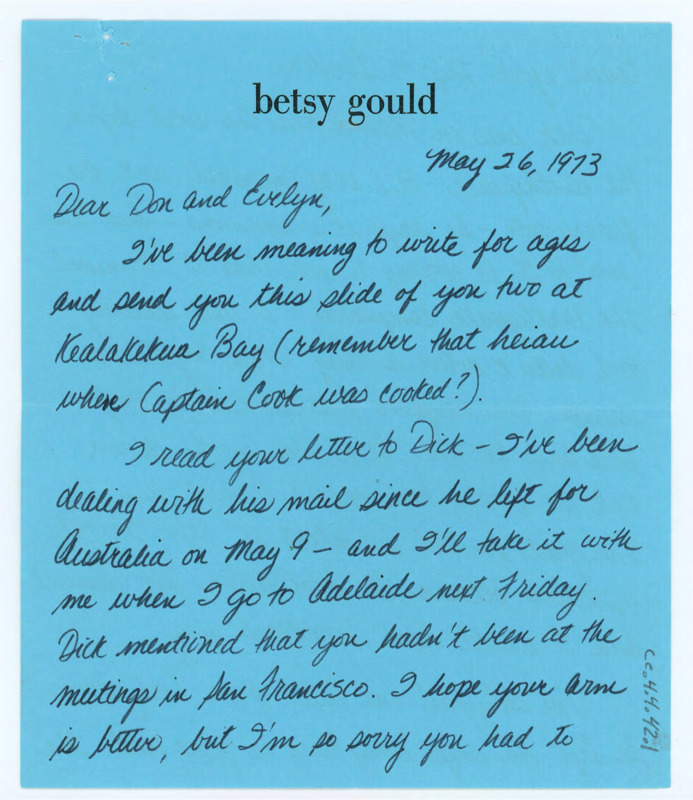 betsy gould
May 26, 1973
Dear Don and Evelyn,
I've been meaning to write for ages
and send you this slide of you two at
Kealakekua Bay (remember that heiau
where Captain Cook was cooked?).
I read your letter to Dick – I've been
dealing with his mail since he left for
Australia on May 9 – and I'll take it with
me when I go to Adelaide next Friday.
Dick mentioned that you hadn't been at the
meetings in San Francisco. I hope your arm
is better, but I'm so sorry you had to
cc.4.4.42.1